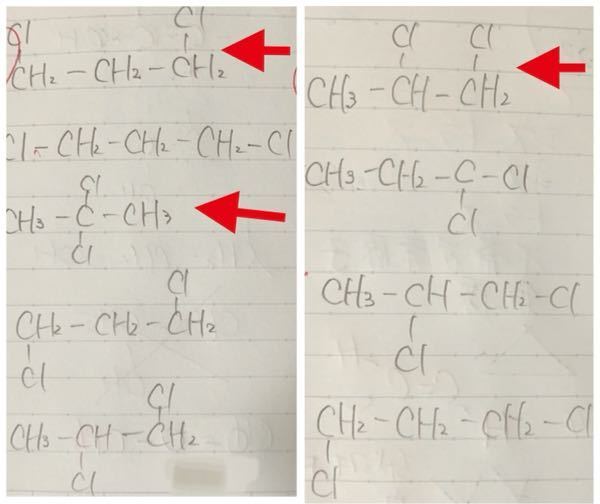 Cl Cl
CH₂-CH₂-CH₂
Cl-CH₂-CH₂-CH₂-Cl
Cl
CH₃-C-CH₃
Cl
Cl
CH₂-CH₂-CH₂
Cl
Cl
CH₃-CH-CH₂
Cl
Cl Cl
CH₃-CH-CH₂
CH₃-CH₂-C-Cl
Cl
CH₃-CH-CH₂-Cl
Cl
CH₂-CH₂-CH₂-Cl
Cl